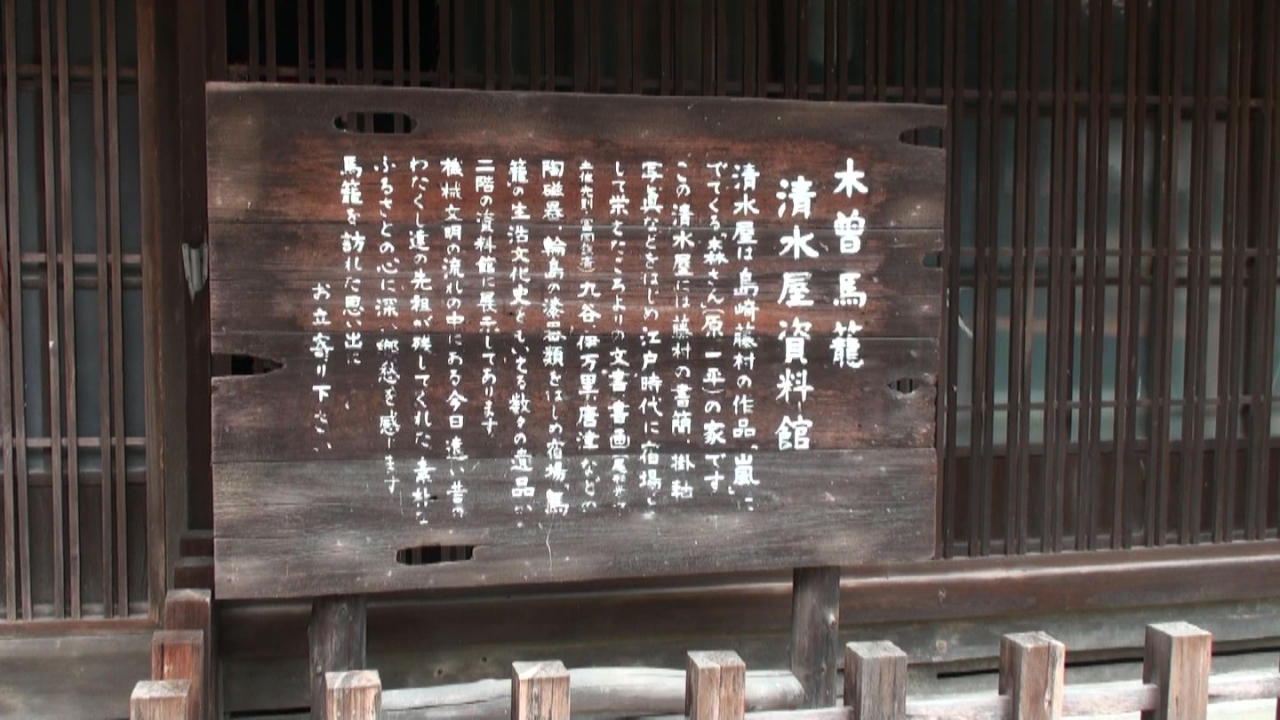 木曽馬籠
清水屋資料館
清水屋は島崎藤村の作品「嵐」に
でてくる森さん(原一平)の家です
この清水屋には藤村の書簡、掛軸
写真などをはじめ江戸時代に宿場と
して栄えたころよりの文書書画
九谷、伊万里、唐津などの
陶磁器、輪島の漆器類をはじめ宿場、馬
籠の生活文化史ともいえる数々の遺品が
二階の資料館に展示してあります
機械文明の流れの中にある今日遠い昔の
わたくし達の先祖が残してくれた素朴な
ふるさとの心に深い郷愁を感じます
馬籠を訪れた思い出に
お立寄り下さい